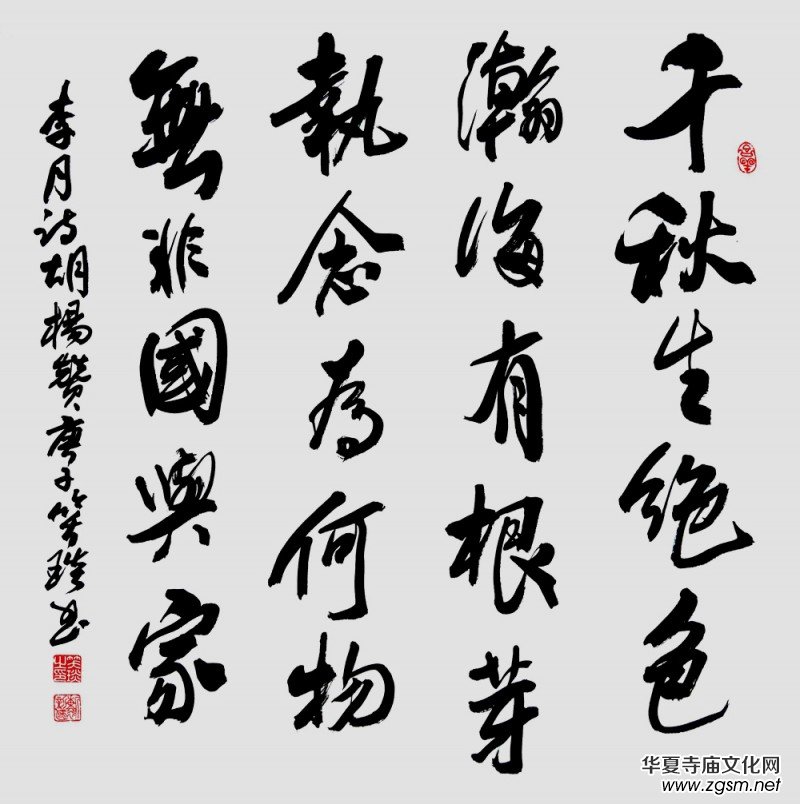 千秋生絶色
瀚海有根芽
執念為何物
無非國與家
李月诗胡楊贊庚子
华夏寺庙文化网
www.zgsm.net